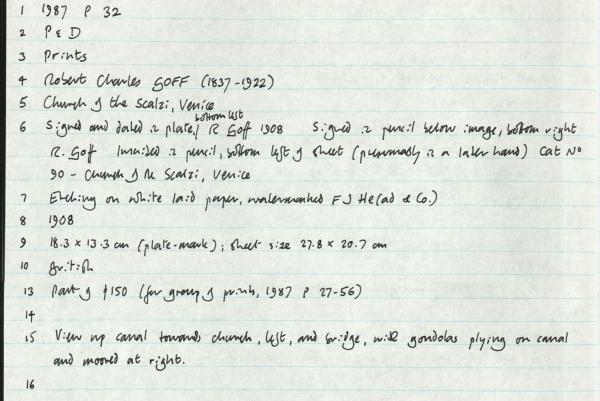 1 1987 P 32
2 P & D
3 Prints
4 Robert Charles GOFF (1837-1922)
5 Church of the Scalzi, Venice
6 Signed and dated in plate, bottom left R Goff 1908 Signed in pencil below image, bottom right
R. Goff Inscribed in pencil, bottom left of sheet (presumably in a later hand) Cat No
90 - Church of the Scalzi, Venice
7 Etching on white laid paper, watermarked F J He(ad & Co.)
8 1908
9 18.3 x 13.3 cm (plate-mark); sheet size 27.8 x 20.7 cm
10 British
13 Part of £150 (for group of prints, 1987 P 27-56)
14
15 View up canal towards church, left, and bridge, with gondolas plying on canal
and moored at right.
16